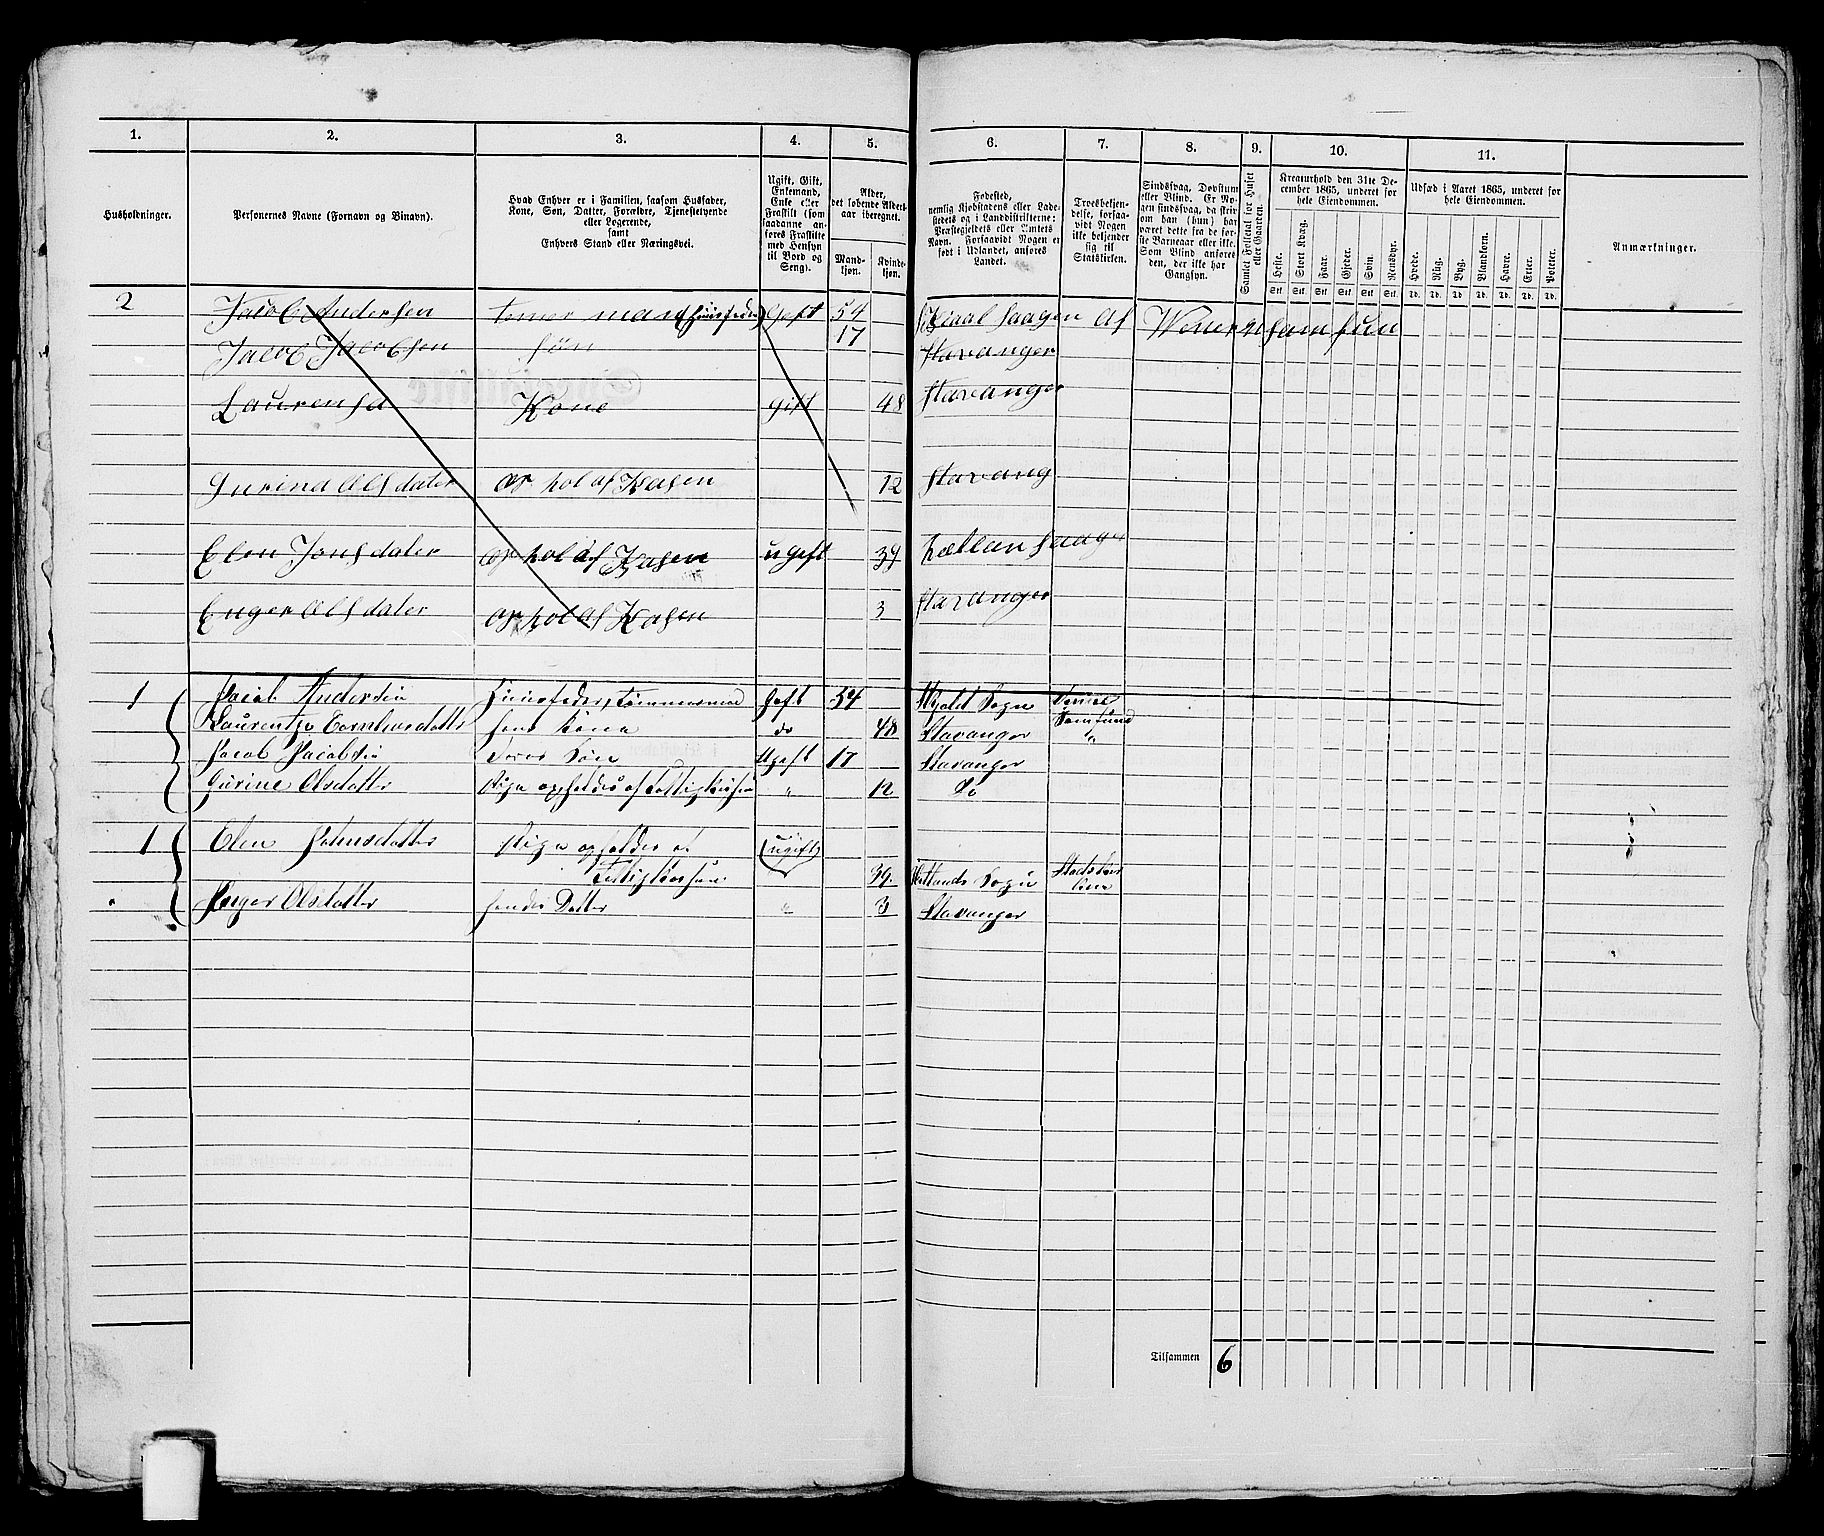 1. 2. 3. 4. 5. 6. 7. 8. 9. 10. 11.
Husholdninger.
Personernes Navne (Fornavn og Binavn).
Hvad Enhver er i Familien, saasom Husfader,
Kone, Søn, Datter, Forældre, Tjenestetyende
eller Logerende,
samt
Enhvers Stand eller Næringsvei.
Ugift, Gift,
Enkemand,
Enke eller
Fraskilt (som
saadanne an-
føres Fraskilte
med Hensyn
til Bord og
Seng).
Alder,
det løbende Alders-
aar iberegnet.
Mand-
kjøn.
Kvinde-
kjøn.
Fødested,
nemlig Kjøbstadens eller Lade-
stedets og i Landdistrikterne:
Præstegjeldets eller Amtets
Navn. Forsaavidt Nogen er
født i Udlandet, anføres
Landet.
Troesbekjen-
delse, forsaa-
vidt Nogen
ikke bekjender
sig til
Statskirken.
Sindssvag, Døvstum
eller Blind. Er No-
gen sindssvag, da skri-
ves om han (hun) har
været dette fra de før-
ste Barneaar eller ikke.
Som Blind anføres
den, der ikke har
Gangsyn.
Samlet Folketal for Huset
eller Gaarden.
Kreaturhold den 31te De-
cember 1865, underet for
hele Eiendommen.
Heste. Stort Kvæg. Faar. Gjeder. Svin. Rensdyr.
Stk. Stk. Stk. Stk. Stk. Stk.
Udsæd i Aaret 1865, underet for
hele Eiendommen.
Hvede. Rug. Byg. Blandkorn. Havre. Erter. Poteter.
Td. Td. Td. Td. Td. Td. Td.
Anmærkninger.
2 Jacob Andersen tomer man Gift 54
Jacob Jacobsen søn 17 stavanger
Laurensa Kone gift 48 stavanger
Gurina Olsdater op hol af Kasen 12 stavang
Elen Jonsdater op hol af Kasen ugift 39
Enger Olsdater op hol af Kasen 3 stavanger
1 Jacob Andersen Huusfader, tømmermand Gift 54 Sogn
Laurentze hans Kone do 48 Stavanger Samfund
Jacob Jacobsen deres Søn Ugift 17 Stavanger "
Gurine Olsdatter Pige opholdes af Fattigkassen " 12 Do
1 Elen Johnsdatter Pige opholdes af (ugift)
Fattigkassen 39 Hetlands Sogn
Inger Olsdatter hendes Datter " 3 Stavanger
Tilsammen 6